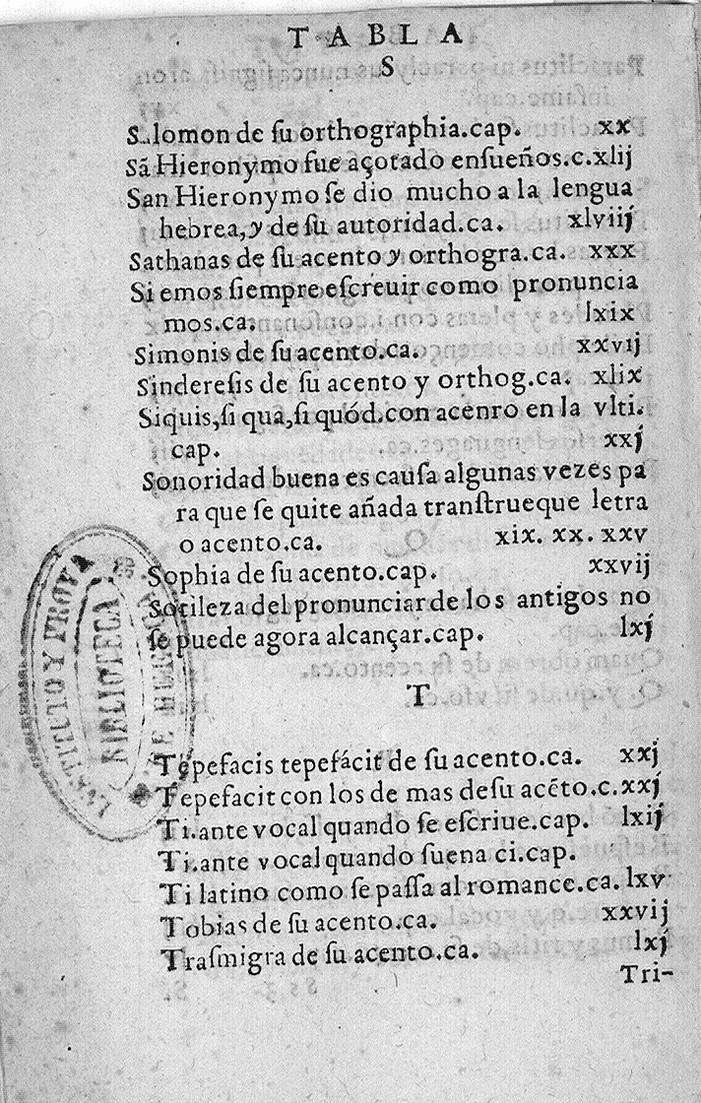 TABLA
S
Salomon de ſu orthographia.cap. xx
Sã Hieronymo fue açotado enſueños.c.xlij
San Hieronymo ſe dio mucho a la lengua
hebrea, y de ſu autoridad.ca. xlviij
Sathanas de ſu acento y orthogra.ca. xxx
Si emos ſiempre eſcreuir como pronuncia
mos.ca. lxix
Simonis de ſu acento.ca. xxvij
Sindereſis de ſu acento y orthog.ca. xlix
Siquis,ſi qua,ſi quód.con acenro en la vlti.
cap. xxj
Sonoridad buena es cauſa algunas vezes pa
ra que ſe quite añada tranſtrueque letra
o acento.ca. xix. xx. xxv
Sophia de ſu acento.cap. xxvij
Sotileza del pronunciar de los antigos no
ſe puede agora alcançar.cap. lxj
T
Tepefacis tepefácit de ſu acento.ca. xxj
Tepefacit con los de mas deſu acẽto.c.xxj
Ti.ante vocal quando ſe eſcriue.cap. lxij
Ti.ante vocal quando ſuena ci.cap.
Ti latino como ſe paſſa al romance.ca. lxv
Tobias de ſu acento.ca. xxvij
Traſmigra de ſu acento.ca. lxj
Tri-
INSTITUTO Y PROVA
BIBLIOTECA
DE HUESCA